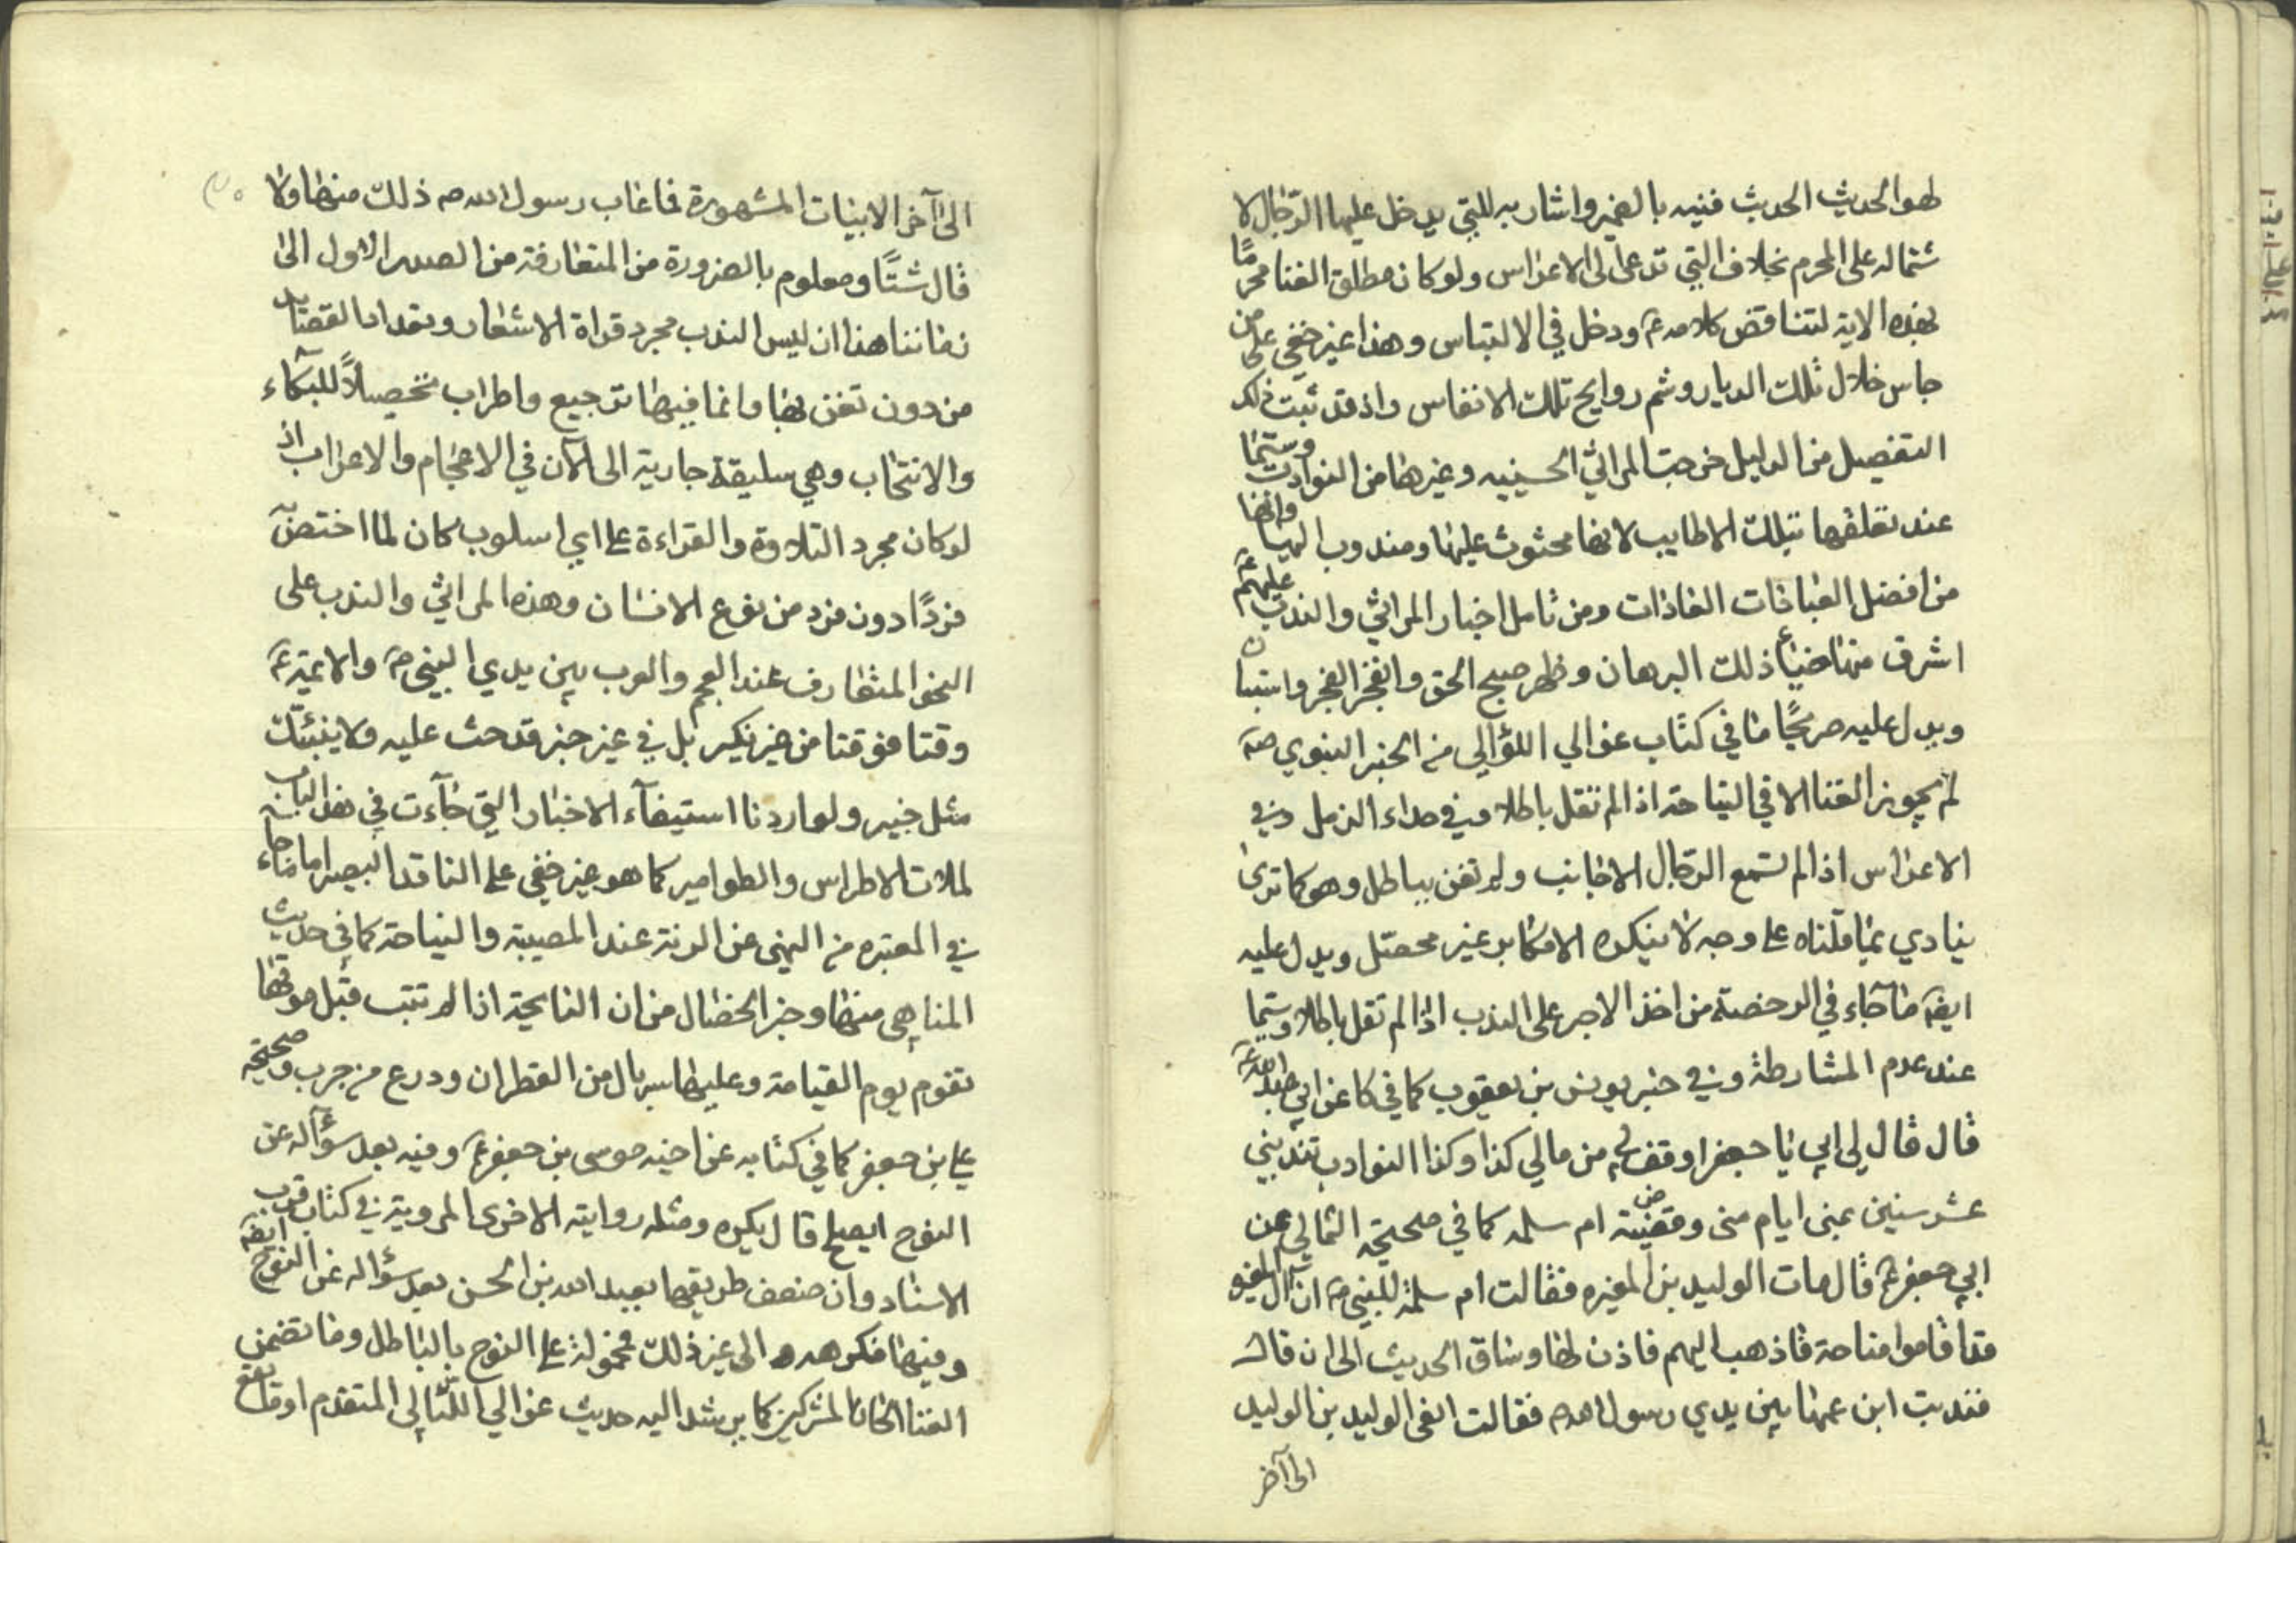 لهو الحديث الحديث فنيه بالضمير واشار به للبتي يدخل عليها الرجال لا
شتماله على المحرم بخلاف التي تدعى الى الاعراس ولو كان مطلق الغنا محرمًا
بهذه الاية لتناقض كلامه ع ودخل في الالتباس وهذا غير خفي على من
جاس خلال تلك الديار وشم روايح تلك الانفاس واذ قد ثبت ذلك
التفصيل من الدليل خرجت المراثي الحسينيه وغيرها من النوادب وسيما
عند تعلقها بتلك الاطايب لانها محثوث عليها ومندوب اليها وانها
من افضل العبادات ومن تامل اخبار المراثي والندب عليهم ع
اشرق منها ضياء ذلك البرهان وظهر صبح الحق وانفجر الفجر واستبان
ويدل عليه صريحًا ما في كتاب عوالي اللؤالي من الخبر النبوي ص
لم يجوز الغنا الا في النياحة اذا لم تقل باطلا وفي حداء الزمل وفي
الاعراس اذا لم تسمع الرجال الاجانب ولم تغن بباطل وهو كما ترى
ينادي بما قلناه على وجه لا ينكره الا مكابر غير محصل ويدل عليه
ايضا ما جاء في الرخصة من اخذ الاجر على الندب اذا لم تقل باطلا وسيما
عند عدم المشارطة وفي خبر يونس بن يعقوب كما في كا عن ابي عبدالله ع
قال قال لي ابي يا جعفر اوقف لي من مالي كذا وكذا النوادب تندبني
عشر سنين بمنى ايام منى وقضية ام سلمه كما في صحيحة الثمالي عن
ابي جعفر ع قال مات الوليد بن المغيره فقالت ام سلمة للنبي ص ان آل المغيره
قد اقاموا مناحة فاذهب اليهم فاذن لها وساق الحديث الى ان قال
فندبت ابن عمها بين يدي رسول الله ص فقالت انعى الوليد بن الوليد
الى آخر
الى آخر الابيات المشهورة فما عاب رسول الله ص ذلك منها ولا
قال شيئًا ومعلوم بالضرورة من المتعارفة من الصدر الاول الى
زماننا هذا ان ليس الندب مجرد قراة الاشعار وتعداد القصائد
من دون تغن بها وانما فيها ترجيع واطراب تحصيلاً للبكاء
والانتحاب وهي سليقة جارية الى الآن في الاعجام والاعراب اذ
لو كان مجرد التلاوة والقراءة على اي اسلوب كان لما اختص
فردًا دون فرد من نوع الانسان وهذه المراثي والندب على
النحو المتعارف عند العجم والعرب بين يدي النبي ص والائمة ع
وقتا فوقتا من غير نكير بل في غير خبر قد حث عليه ولا ينبئك
مثل خبير ولو اردنا استيفآء الاخبار التي جآءت في هذا الباب
لملات الاطراس والطوامير كما هو غير خفي على الناقد البصير اما ما جاء
في المعتبره من النهى عن الرنة عند المصيبة والنياحة كما في حديث
المناهي منها وخبر الخصال من ان النايحة اذا لم تتب قبل موتها
تقوم يوم القيامة وعليها سربال من القطران ودرع من جرب وصحيحة
علي بن جعفر كما في كتابه عن اخيه موسى بن جعفر ع وفيه بعد سؤاله عن
النوح ايصلح قال يكره ومثله روايته الاخرى المروية في كتاب قرب
الاسناد وان ضعف طريقها بعبد الله بن الحسن بعد سؤاله عن النوح ايضا
وفيها فكرهه الى غير ذلك فمحمولة على النوح بالباطل وما تضمن
الغنا المشركين كما يرشد اليه حديث عوالي اللئالي المتقدم او